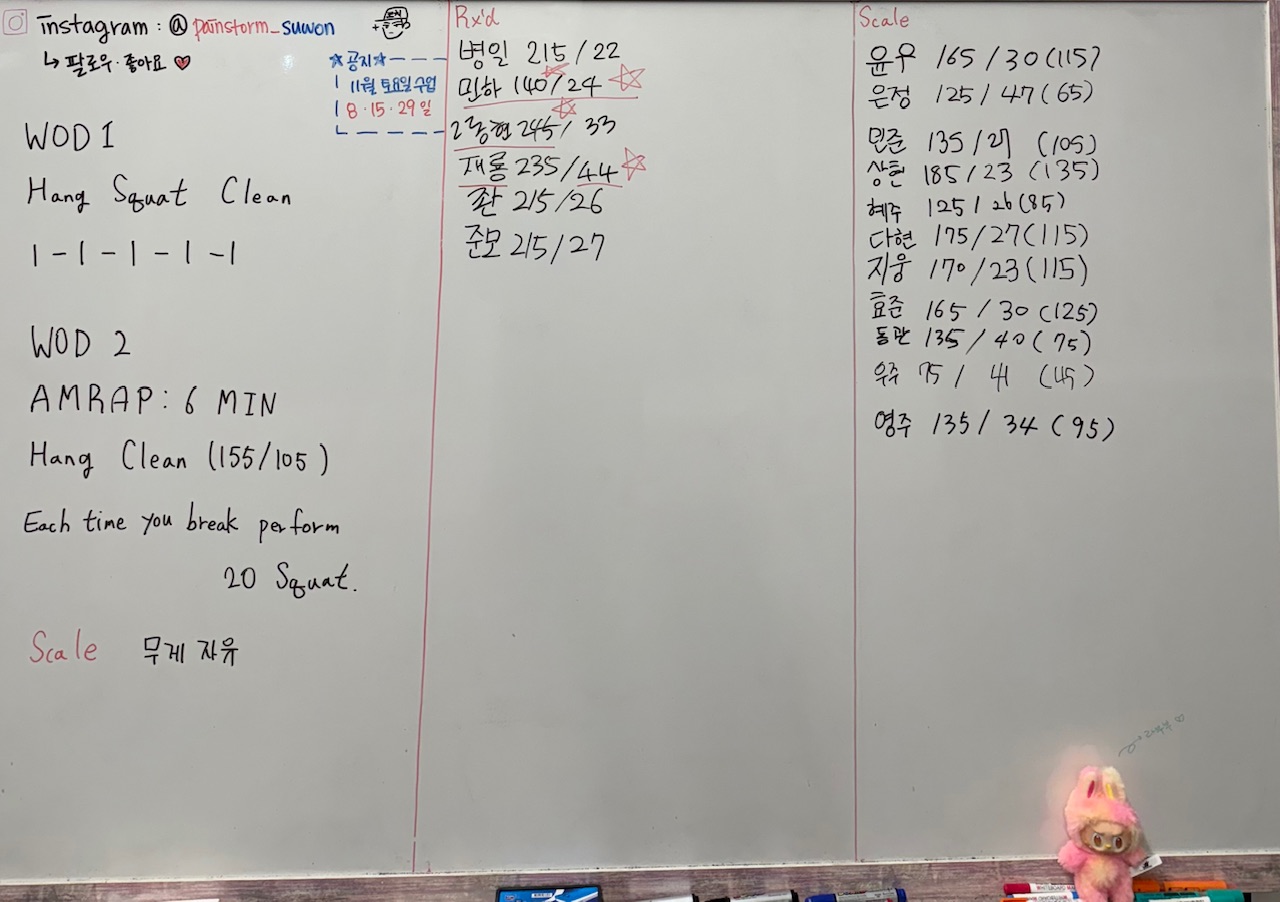 instagram : @ painstorm_suwon
↳ 팔로우·좋아요 ♥
☆공지☆
11월 토요일 수업
8·15·29일
WOD 1
Hang Squat Clean
1 - 1 - 1 - 1 - 1
WOD 2
AMRAP : 6 MIN
Hang Clean (155/105)
Each time you break perform
20 Squat.
Scale 무게 자유
Rx'd
병일 215 / 22
민하 140 / 24 ☆
245 / 33
재룡 235 / 44 ☆
215 / 26
준모 215 / 27
Scale
윤우 165 / 30 (115)
은정 125 / 47 (65)
민준 135 / 27 (105)
상현 185 / 23 (135)
혜주 125 / 26 (85)
다현 175 / 27 (115)
지웅 170 / 23 (115)
효준 165 / 30 (125)
동관 135 / 40 (75)
우주 75 / 41 (45)
영주 135 / 34 (95)